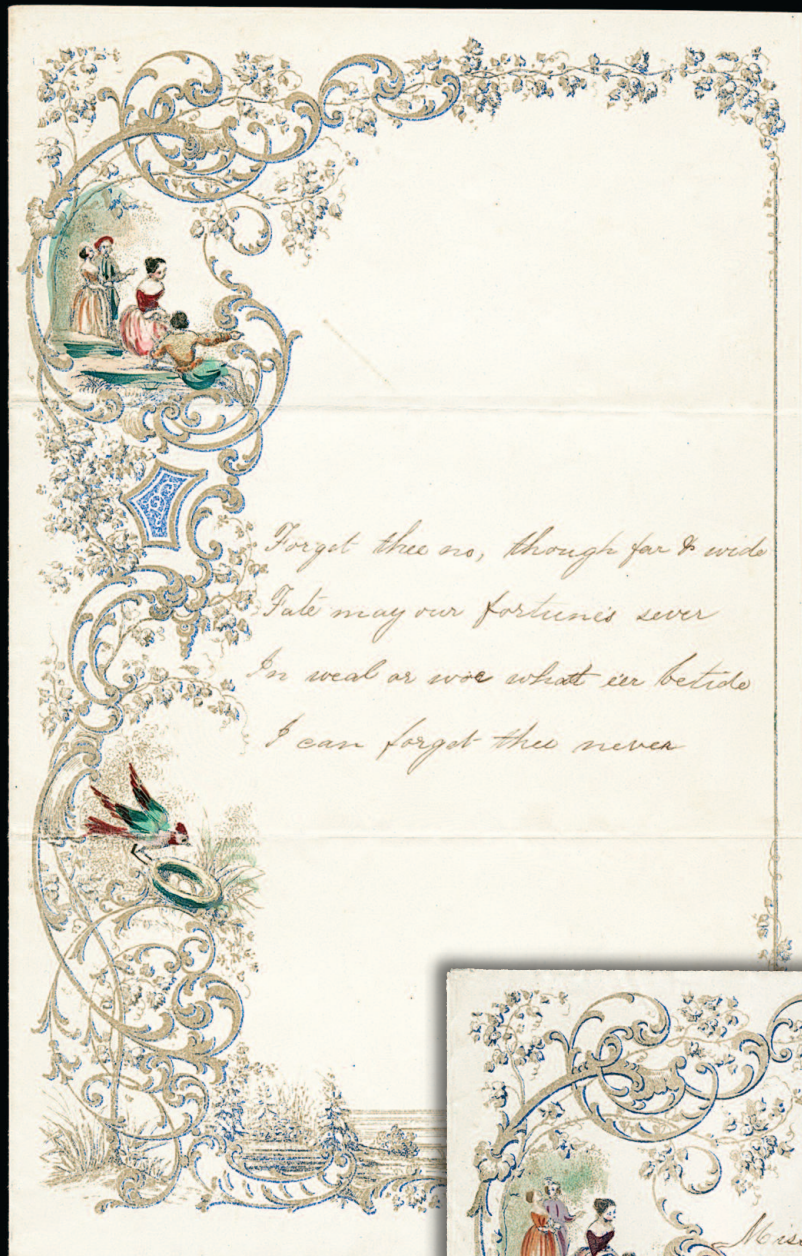 Forget thee no, though far & wide
Fate may our fortunes sever
In weal or woe what eer betide
I can forget thee never
Miss